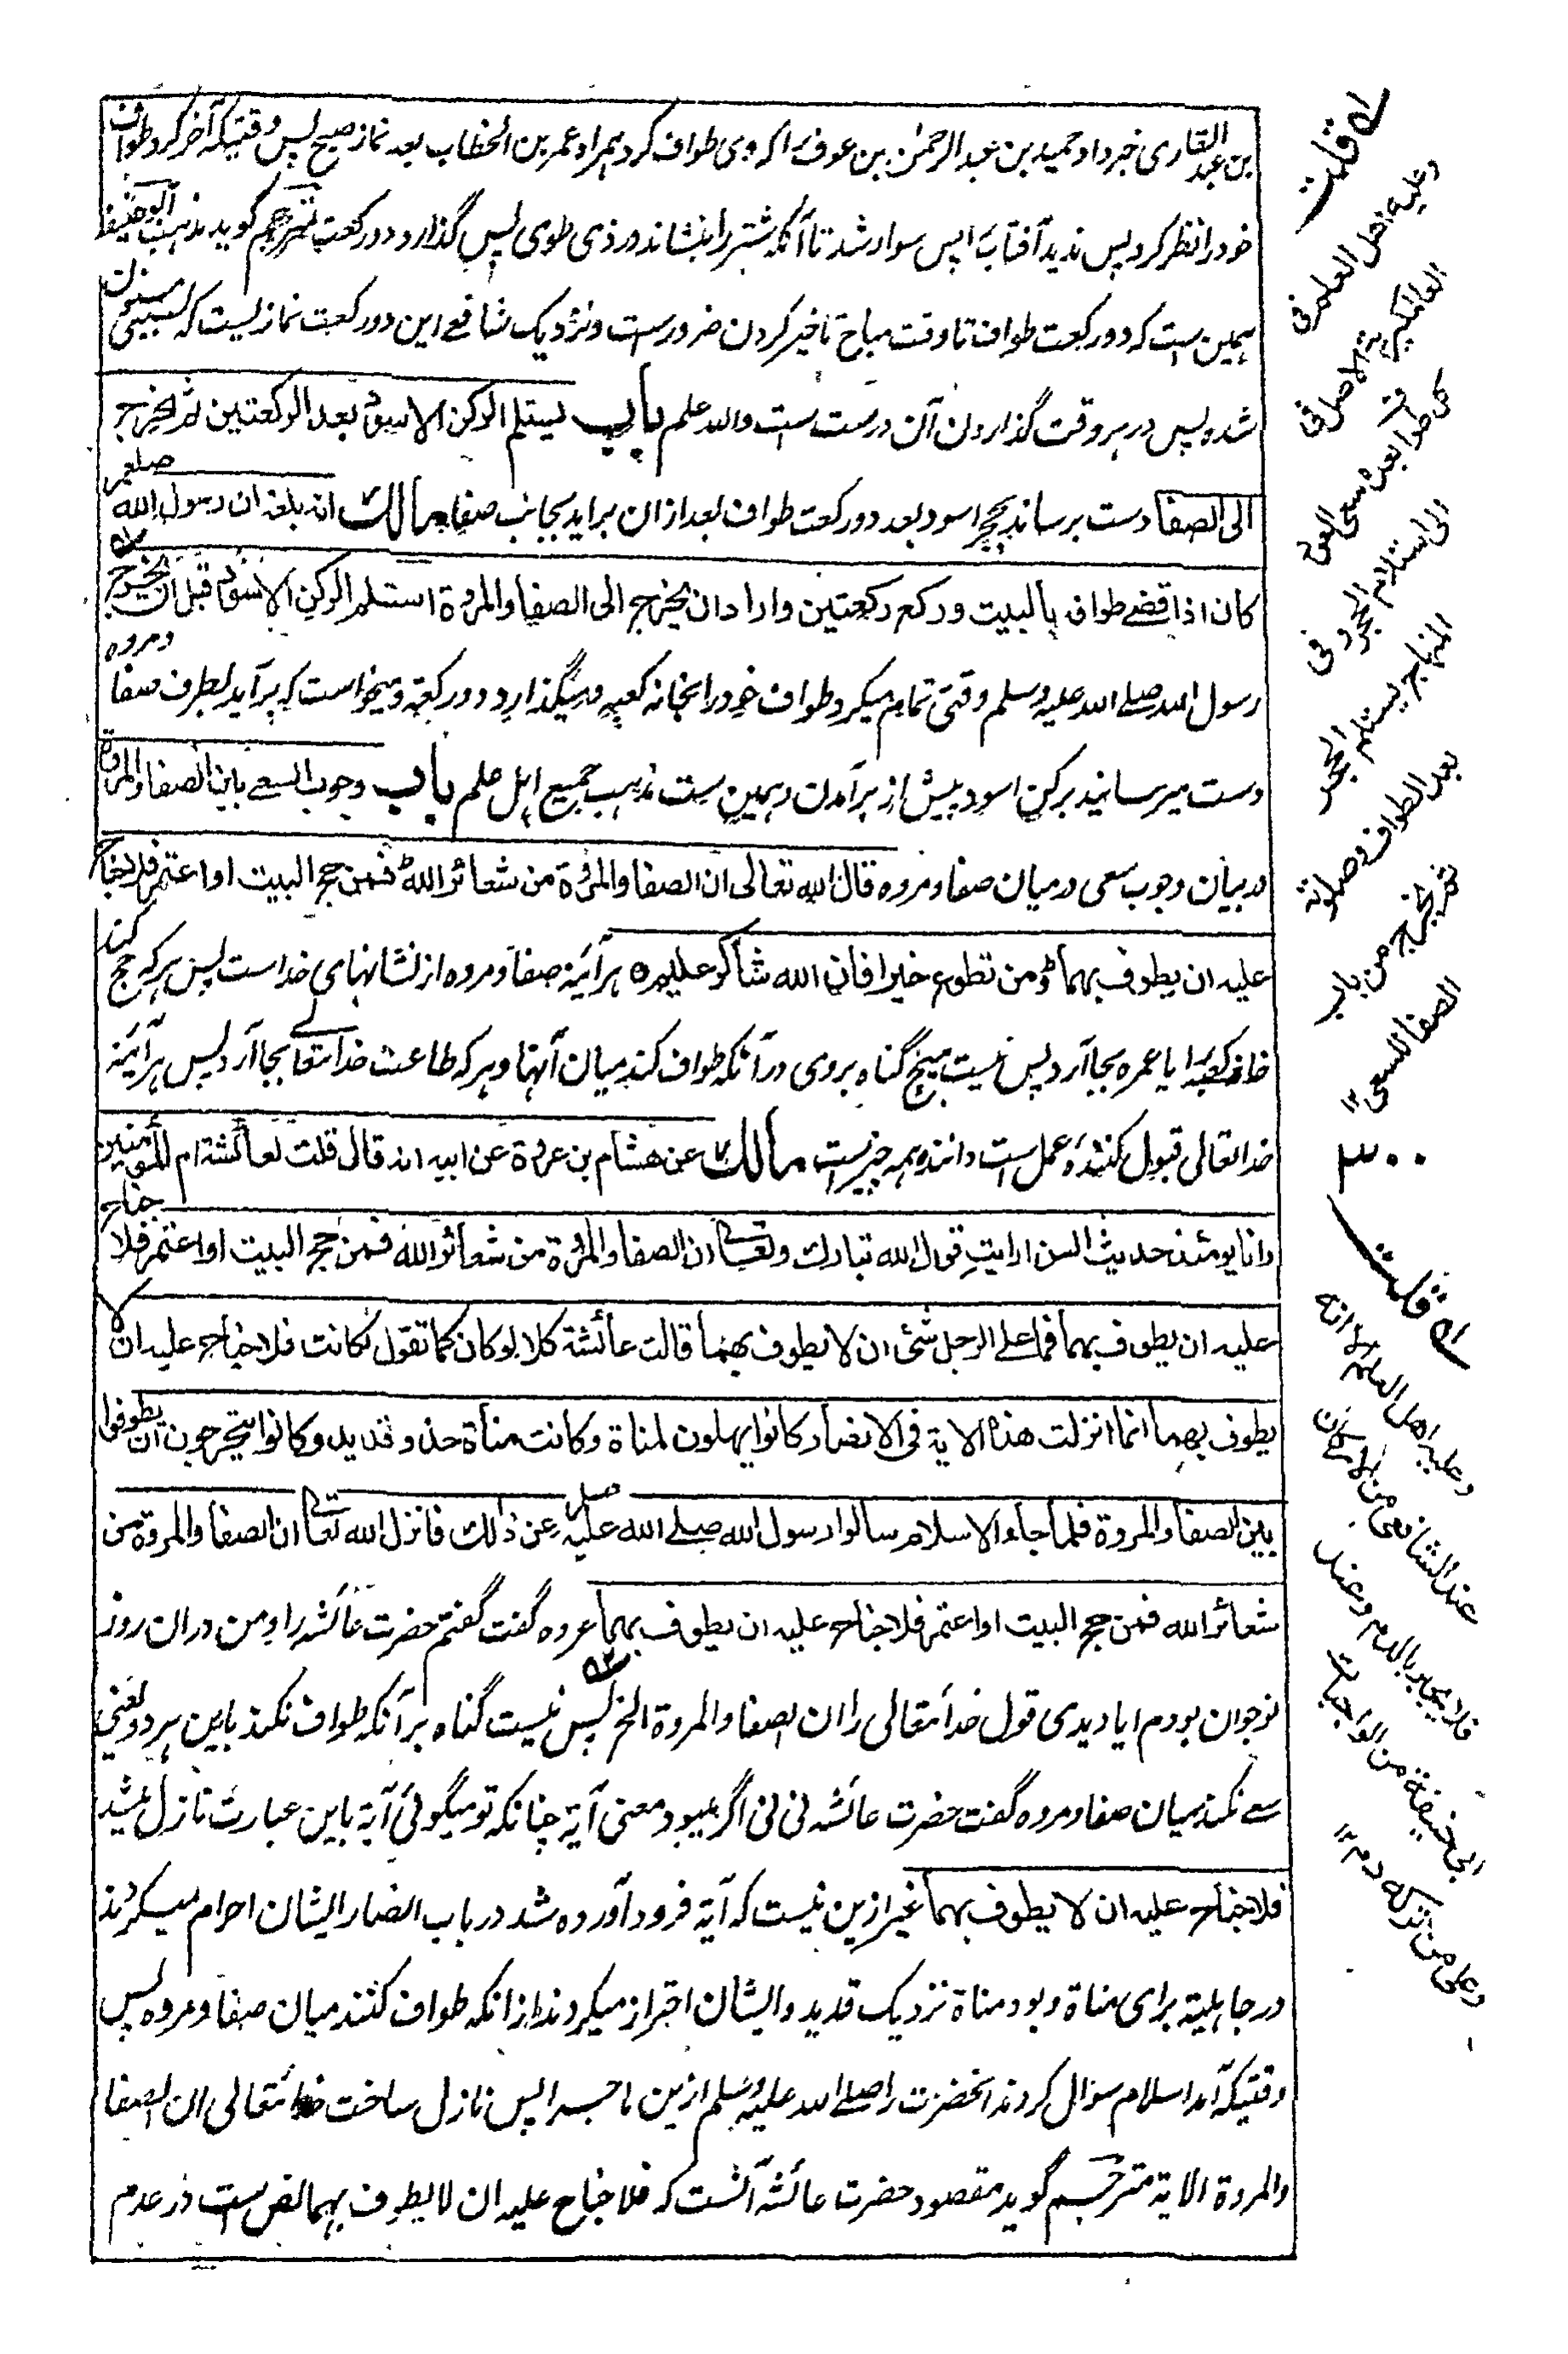 بن عبد القاری خبر داد حمید بن عبد الرحمٰن بن عوف را که وی طواف کرد همراه عمر بن الخطاب بعد نماز صبح پس وقتیکه آخر کرد طواف
خود را نظر کرد پس ندید آفتاب را پس سوار شد تا آنکه شتر را بنشاند در ذی طوی پس گذارد دو رکعت مترجم گوید مذہب ابو حنیفہ
ہمین ست که دو رکعت طواف تا وقت مباح تاخیر کردن ضرورست و نزدیک شافعے این دو رکعت نمازیست که بسببی مسنون
شده پس در ہر وقت گذاردن آن درست ست والله علم باب یستلم الرکن الاسود بعد الرکعتین ثم یخرج
الی الصفا دست برساند بحجر اسود بعد دو رکعت طواف بعد ازان براید بجانب صفا مالک انه بلغه ان رسول الله صلعم
کان اذا قضے طوافه بالبیت ورکع رکعتین واراد ان یخرج الی الصفا والمروة استلم الرکن الاسود قبل ان یخرج
رسول الله صلے الله علیه وسلم وقتی تمام میکرد طواف خود را بخانه کعبه و میگذارد دو رکعة و میخواست که برآید بطرف صفا ومروه
دست میرسانید برکن اسود پیش از برآمدن و ہمین ست مذہب جمیع اہل علم باب وجوب السعے بین الصفا والمروة
در بیان وجوب سعی درمیان صفا و مروه قال الله تعالی ان الصفا والمروة من شعائر الله فمن حج البیت او اعتمر فلا جناح
علیه ان یطوف بهما ومن تطوع خیرا فان الله شاکر علیم ہرآئینه صفا و مروه از نشانهای خداست پس ہر که حج کند
خانه کعبه را یا عمره بجا آرد پس نیست ہیچ گناه بروی درآنکه طواف کند میان آنها و ہر که طاعت خدایتعالے بجا آرد پس ہرآئینه
خدایتعالی قبول کنندۂ عمل است داننده ہمه چیز ست مالک عن هشام بن عروة عن ابیه انه قال قلت لعائشة ام المؤمنین
وانا یومئذ حدیث السن ارایت قول الله تبارک وتعالے ان الصفا والمروة من شعائر الله فمن حج البیت او اعتمر فلا جناح
علیه ان یطوف بهما فما علی الرجل شئ ان لا یطوف بهما قالت عائشة کلا لو کان کما تقول لکانت فلا جناح علیه ان لا
یطوف بهما انما انزلت هذه الایة فی الانصار کانوا یهلون لمناة وکانت مناة حذو قدید وکانوا یتحرجون ان یطوفوا
بین الصفا والمروة فلما جاء الاسلام سالوا رسول الله صلے الله علیه وسلم عن ذلک فانزل الله تعالے ان الصفا والمروة من
شعائر الله فمن حج البیت او اعتمر فلا جناح علیه ان یطوف بهما عروه گفت گفتم حضرت عائشه را و من دران روز
نوجوان بودم ایا دیدی قول خدایتعالی را ان الصفا والمروة الخ پس نیست گناه برآنکه طواف نکند باین ہردو یعنی
سعے نکند میان صفا و مروه گفت حضرت عائشه نی نی اگر میبود معنی آیة چنانکه تو میگوئی آیة باین عبارت نازل میشد
فلا جناح علیه ان لا یطوف بهما غیر ازین نیست که آیة فرود آورده شد در باب انصار ایشان احرام میکردند
در جاہلیة برای مناة و بود مناة نزدیک قدید و ایشان احتراز میکردند ازانکه طواف کنند میان صفا و مروه پس
وقتیکه آمد اسلام سؤال کردند آنحضرت را صلے الله علیه وسلم ازین ماجرا پس نازل ساخت خدایتعالی ان الصفا
والمروة الایة مترجم گوید مقصود حضرت عائشه آنست که فلا جناح علیه ان لا یطوف بهما نص ست در عدم
له قلت
وعلیه اهل العلم فی
العالمگیریة الاصل فی
کل طواف بعده سعی العود
الی استلام الحجر و فی
المنهاج یستلم الحجر
بعد الطواف وصلوته
ثم یخرج من باب
الصفا للسعی ۱۲
٣٠٠
له قلت
وعلیه اهل العلم الا انه
عند الشافعی من الارکان
فلا یجبر بالدم وعند
ابی حنیفة من الواجبات
وعلی من ترکه دم ۱۲